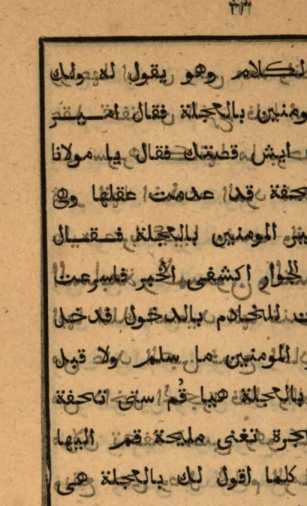 ٤٣
الكلام وهو يقول له ولك
ومنين بالعجلة فقال
ايش قصتك فقال يا مولانا
تحفة قد عدمت عقلها وهي
المومنين بالعجلة فقال
الجوار اكشفى الخبر فاسرعت
للخادم بالدخول فدخل
المومنين ما سلم ولا قبل
بالعجلة هيا قُم ستى تحفة
تغنى مليحة قم اليها
كلما اقول لك بالعجلة هى